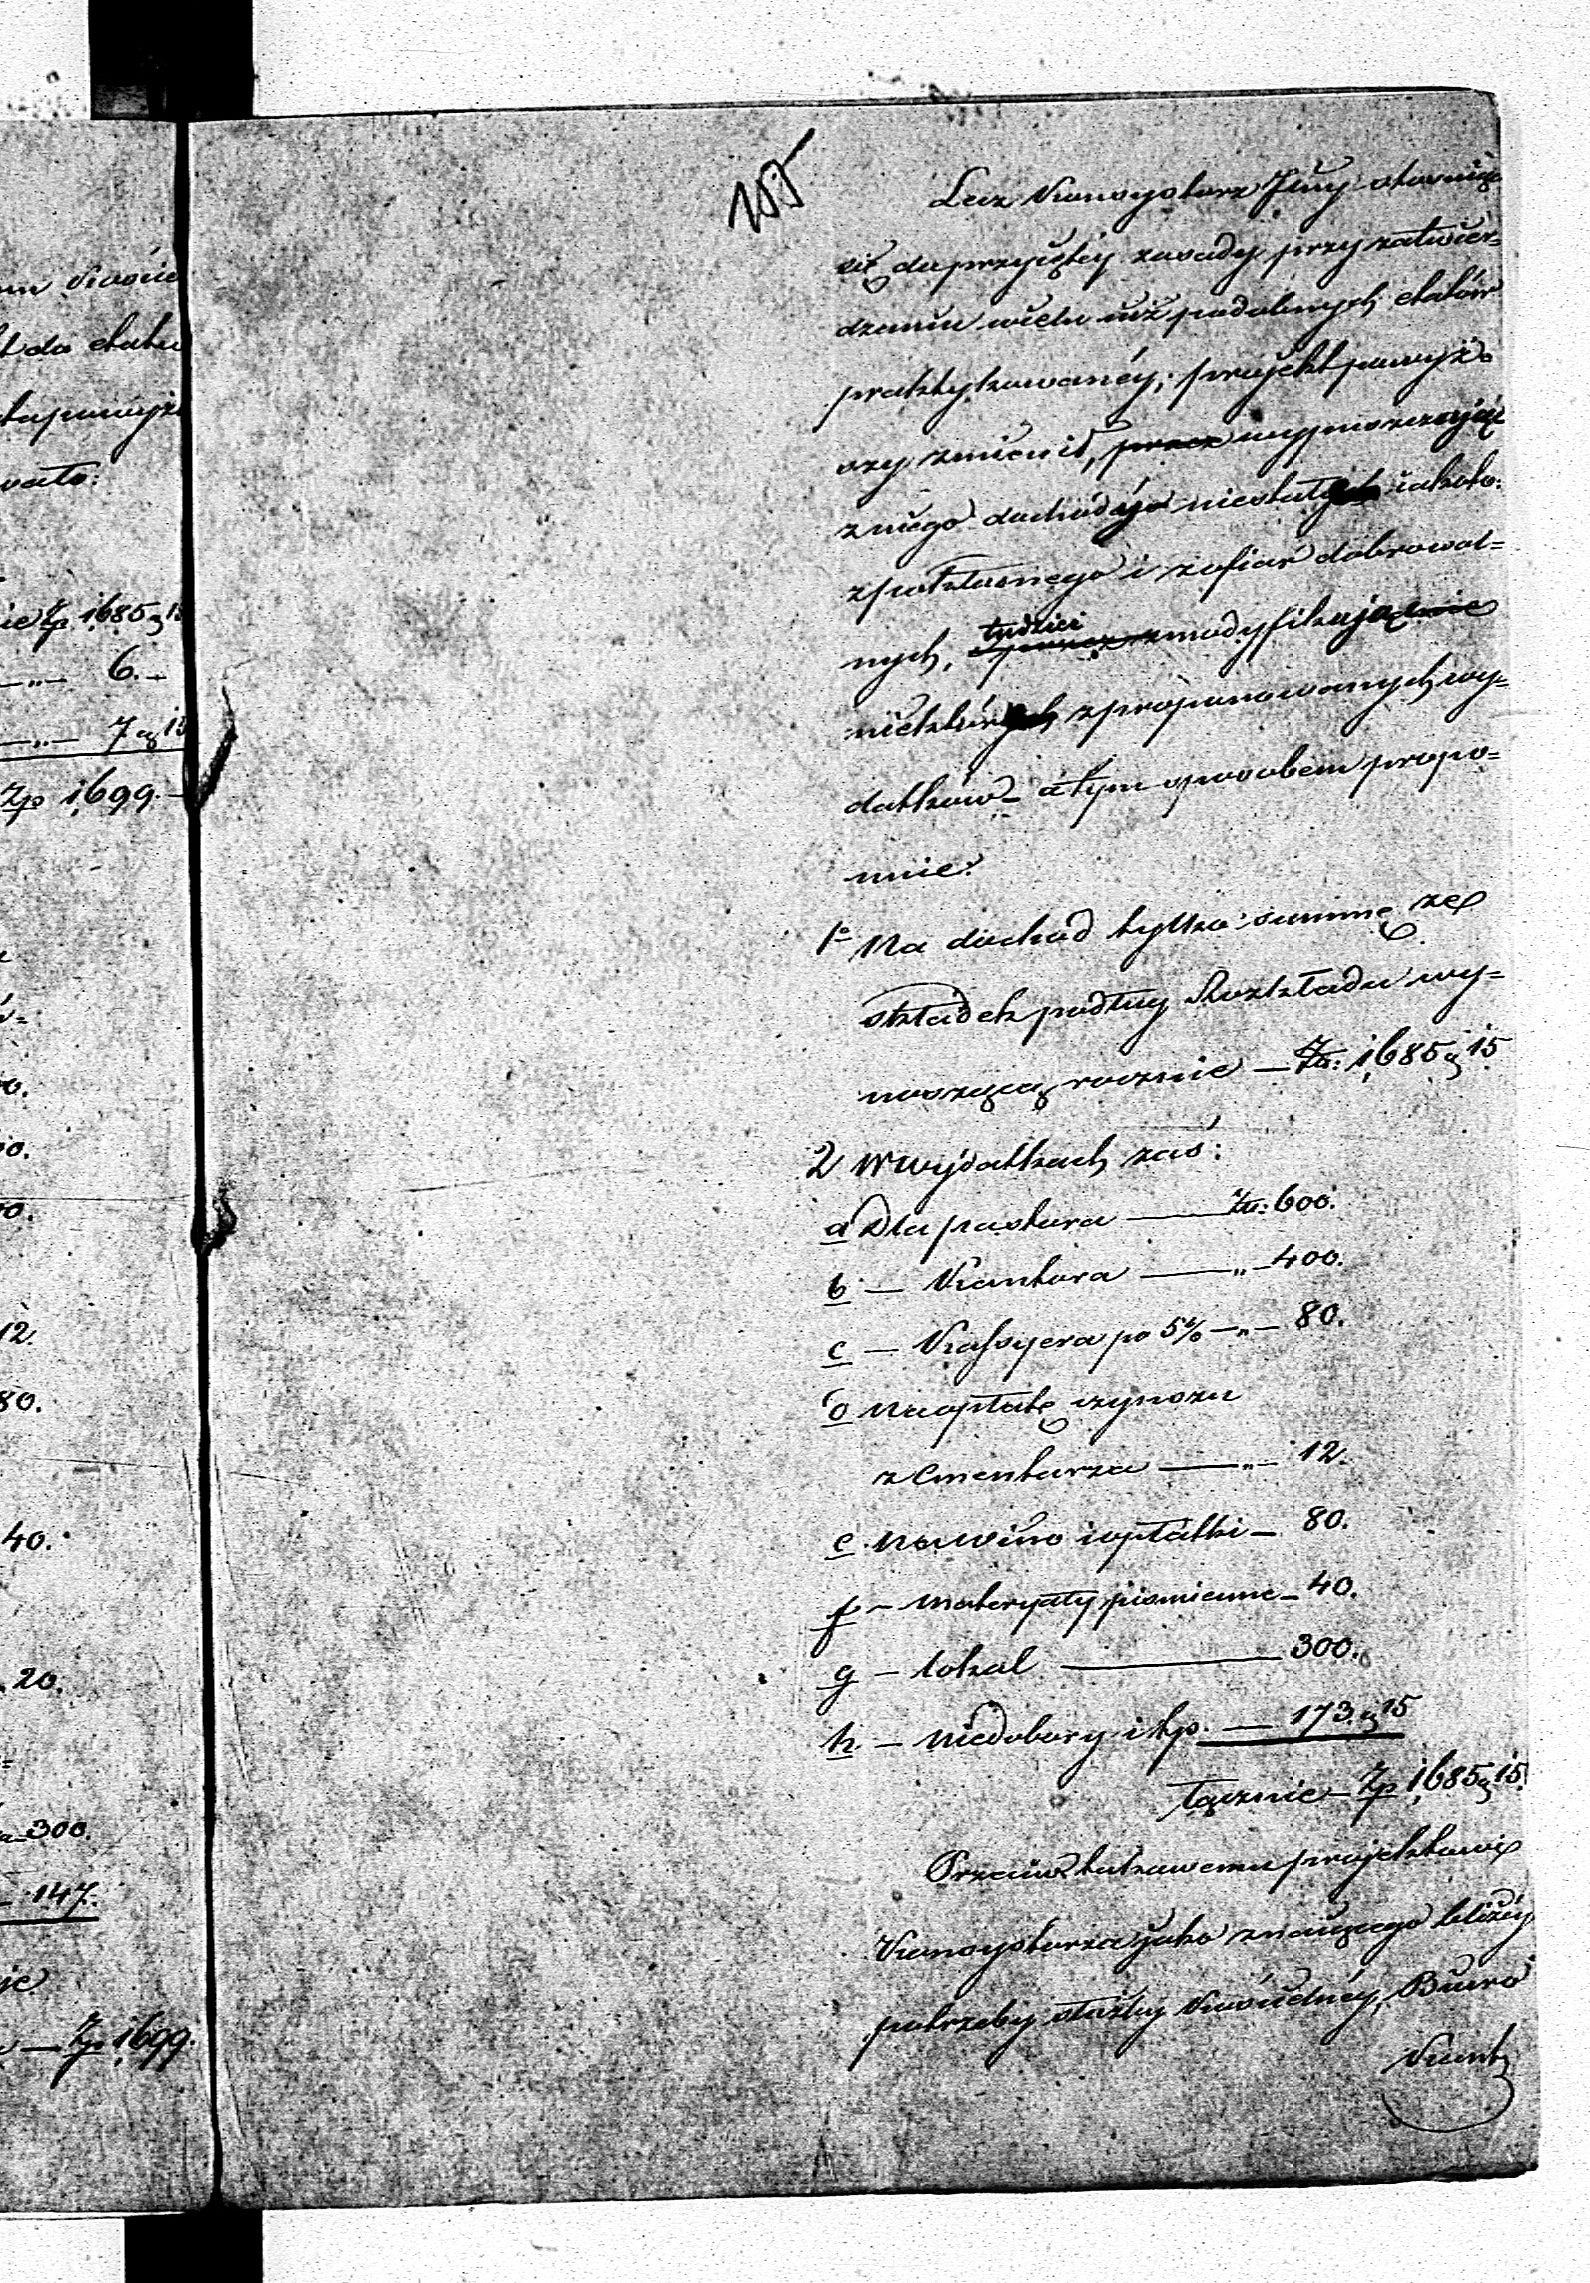 m Kościo
t do etatu
stępującj
wało:
ie Zp 1685 g 15
—„— 6.—
—„— 7 g 15
Zp 1699.—
0.
00.
0.
12.
80.
40.
20.
300.
— 147.
je
— Zp 1699.
155
Lecz Konsystorz Jlny stosując
się do przyiętéy zasady przy zatwier=
dzaniu wielu iuż podobnych etatów
praktykowanéy; projekt powyż=
szy zmienił, przez wypuszczając
z niego dochody niestałe iako to:
z pokładnego i z ofiar dobrowol=
nych, tudzież przez zmodyfikując
niektóre z proponowanych wy=
datków – a tym sposobem propo=
nuie:
1o Na dochód tylko summę ze
składek podług Rozkładu wy=
noszącą rocznie — Zp: 1685 g 15
2 W wydatkach zaś:
a Dla pastora — Zp: 600.
b — Kantora — „ — 400.
c — Kassyera po 5% — „ — 80.
d na opłatę czynszu
z Cmentarza — „ — 12.
e na wino i opłatki — 80.
f — materyały piśmienne — 40.
g — lokal — 300.
h — niedobory itp. — 173. g 15
łącznie — Zp 1685 g 15.
Przeciw takowemu projektowi
Konsystorza jako znaiącego bliżéy
potrzeby służby Kościelnéy, Biuro
Kontr